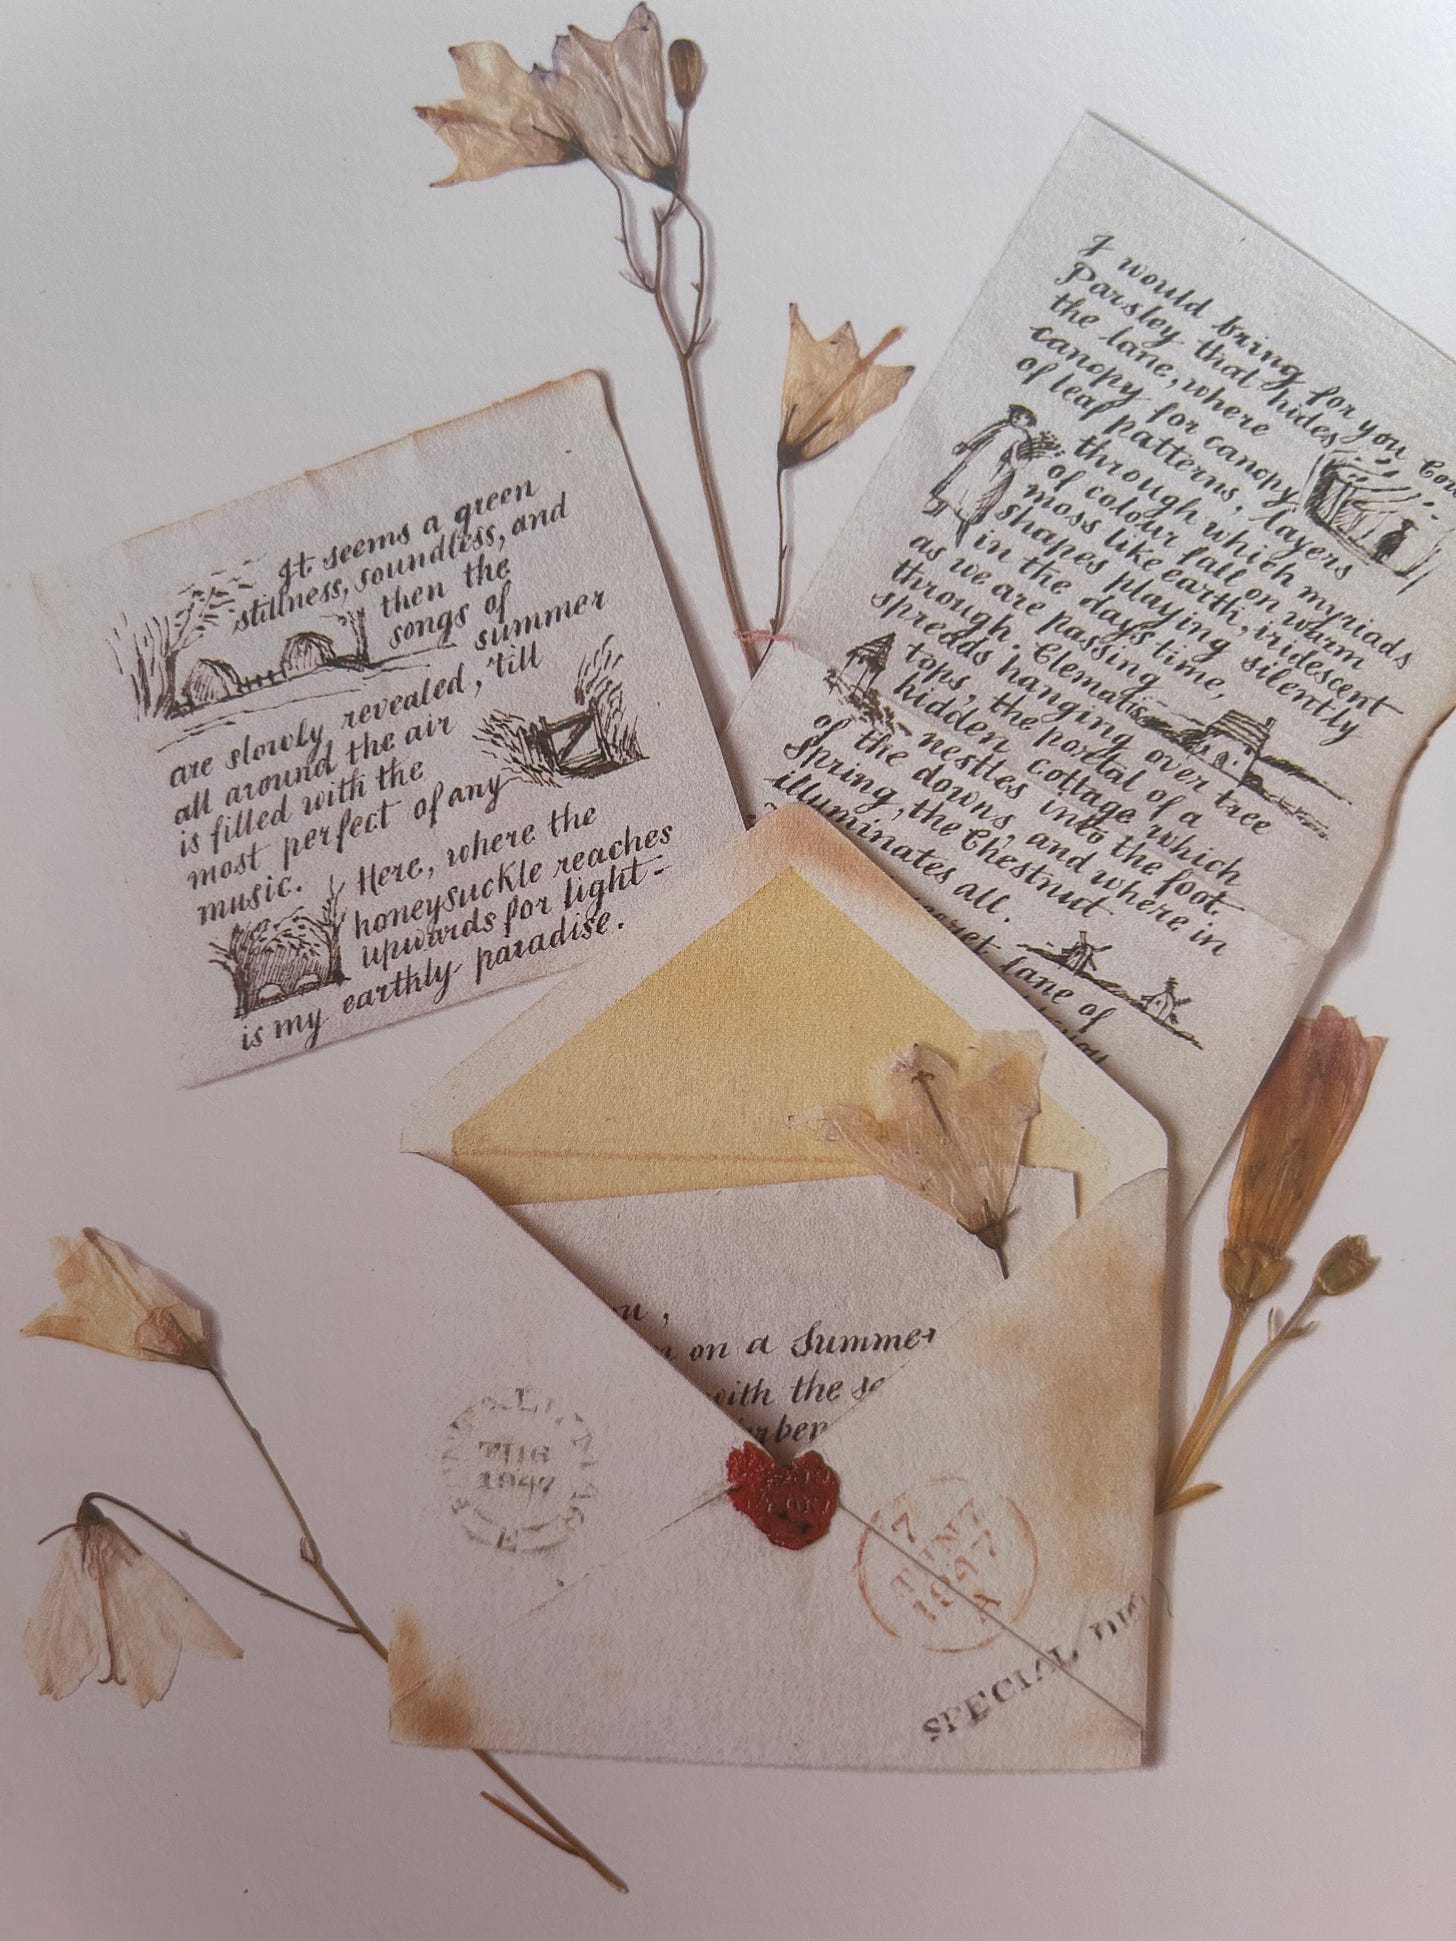 It seems a green
stillness, soundless, and
then the
songs of
summer
are slowly revealed, 'till
all around the air
is filled with the
most perfect of any
music.
Here, where the
honeysuckle reaches
upwards for light-
is my earthly paradise.
I would bring for you Cow
Parsley that hides
the lane, where
canopy for canopy
of leaf patterns, layers
through which myriads
of colour fall on warm
moss like earth, iridescent
shapes playing silently
in the days time,
as we are passing
through. Clematis
spreads hanging over tree
tops, the portal of a
hidden cottage which
nestles into the foot
of the downs, and where in
Spring, the Chestnut
illuminates all.
lane of
on a Summer
with the
1847
7
JN7
1847
A
SPECIAL